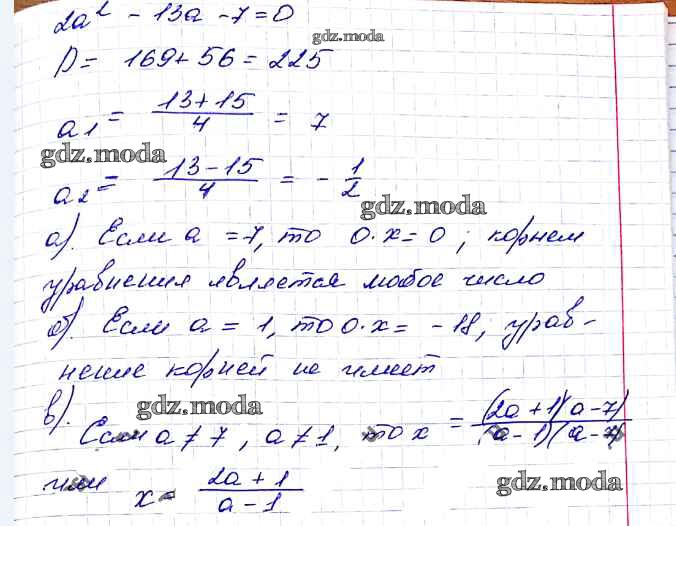 2a² - 13a - 7 = 0
gdz.moda
D = 169 + 56 = 225
a₁ = (13 + 15)/4 = 7
gdz.moda
a₂ = (13 - 15)/4 = - 1/2
gdz.moda
а). Если a = 7, то 0·x = 0; корнем
уравнения является любое число
б). Если a = 1, то 0·x = - 18; урав-
нение корней не имеет
gdz.moda
в). Если a ≠ 7, a ≠ 1, то x = (2a + 1)(a - 7)/(a - 1)(a - 7)
или x = (2a + 1)/(a - 1)
gdz.moda